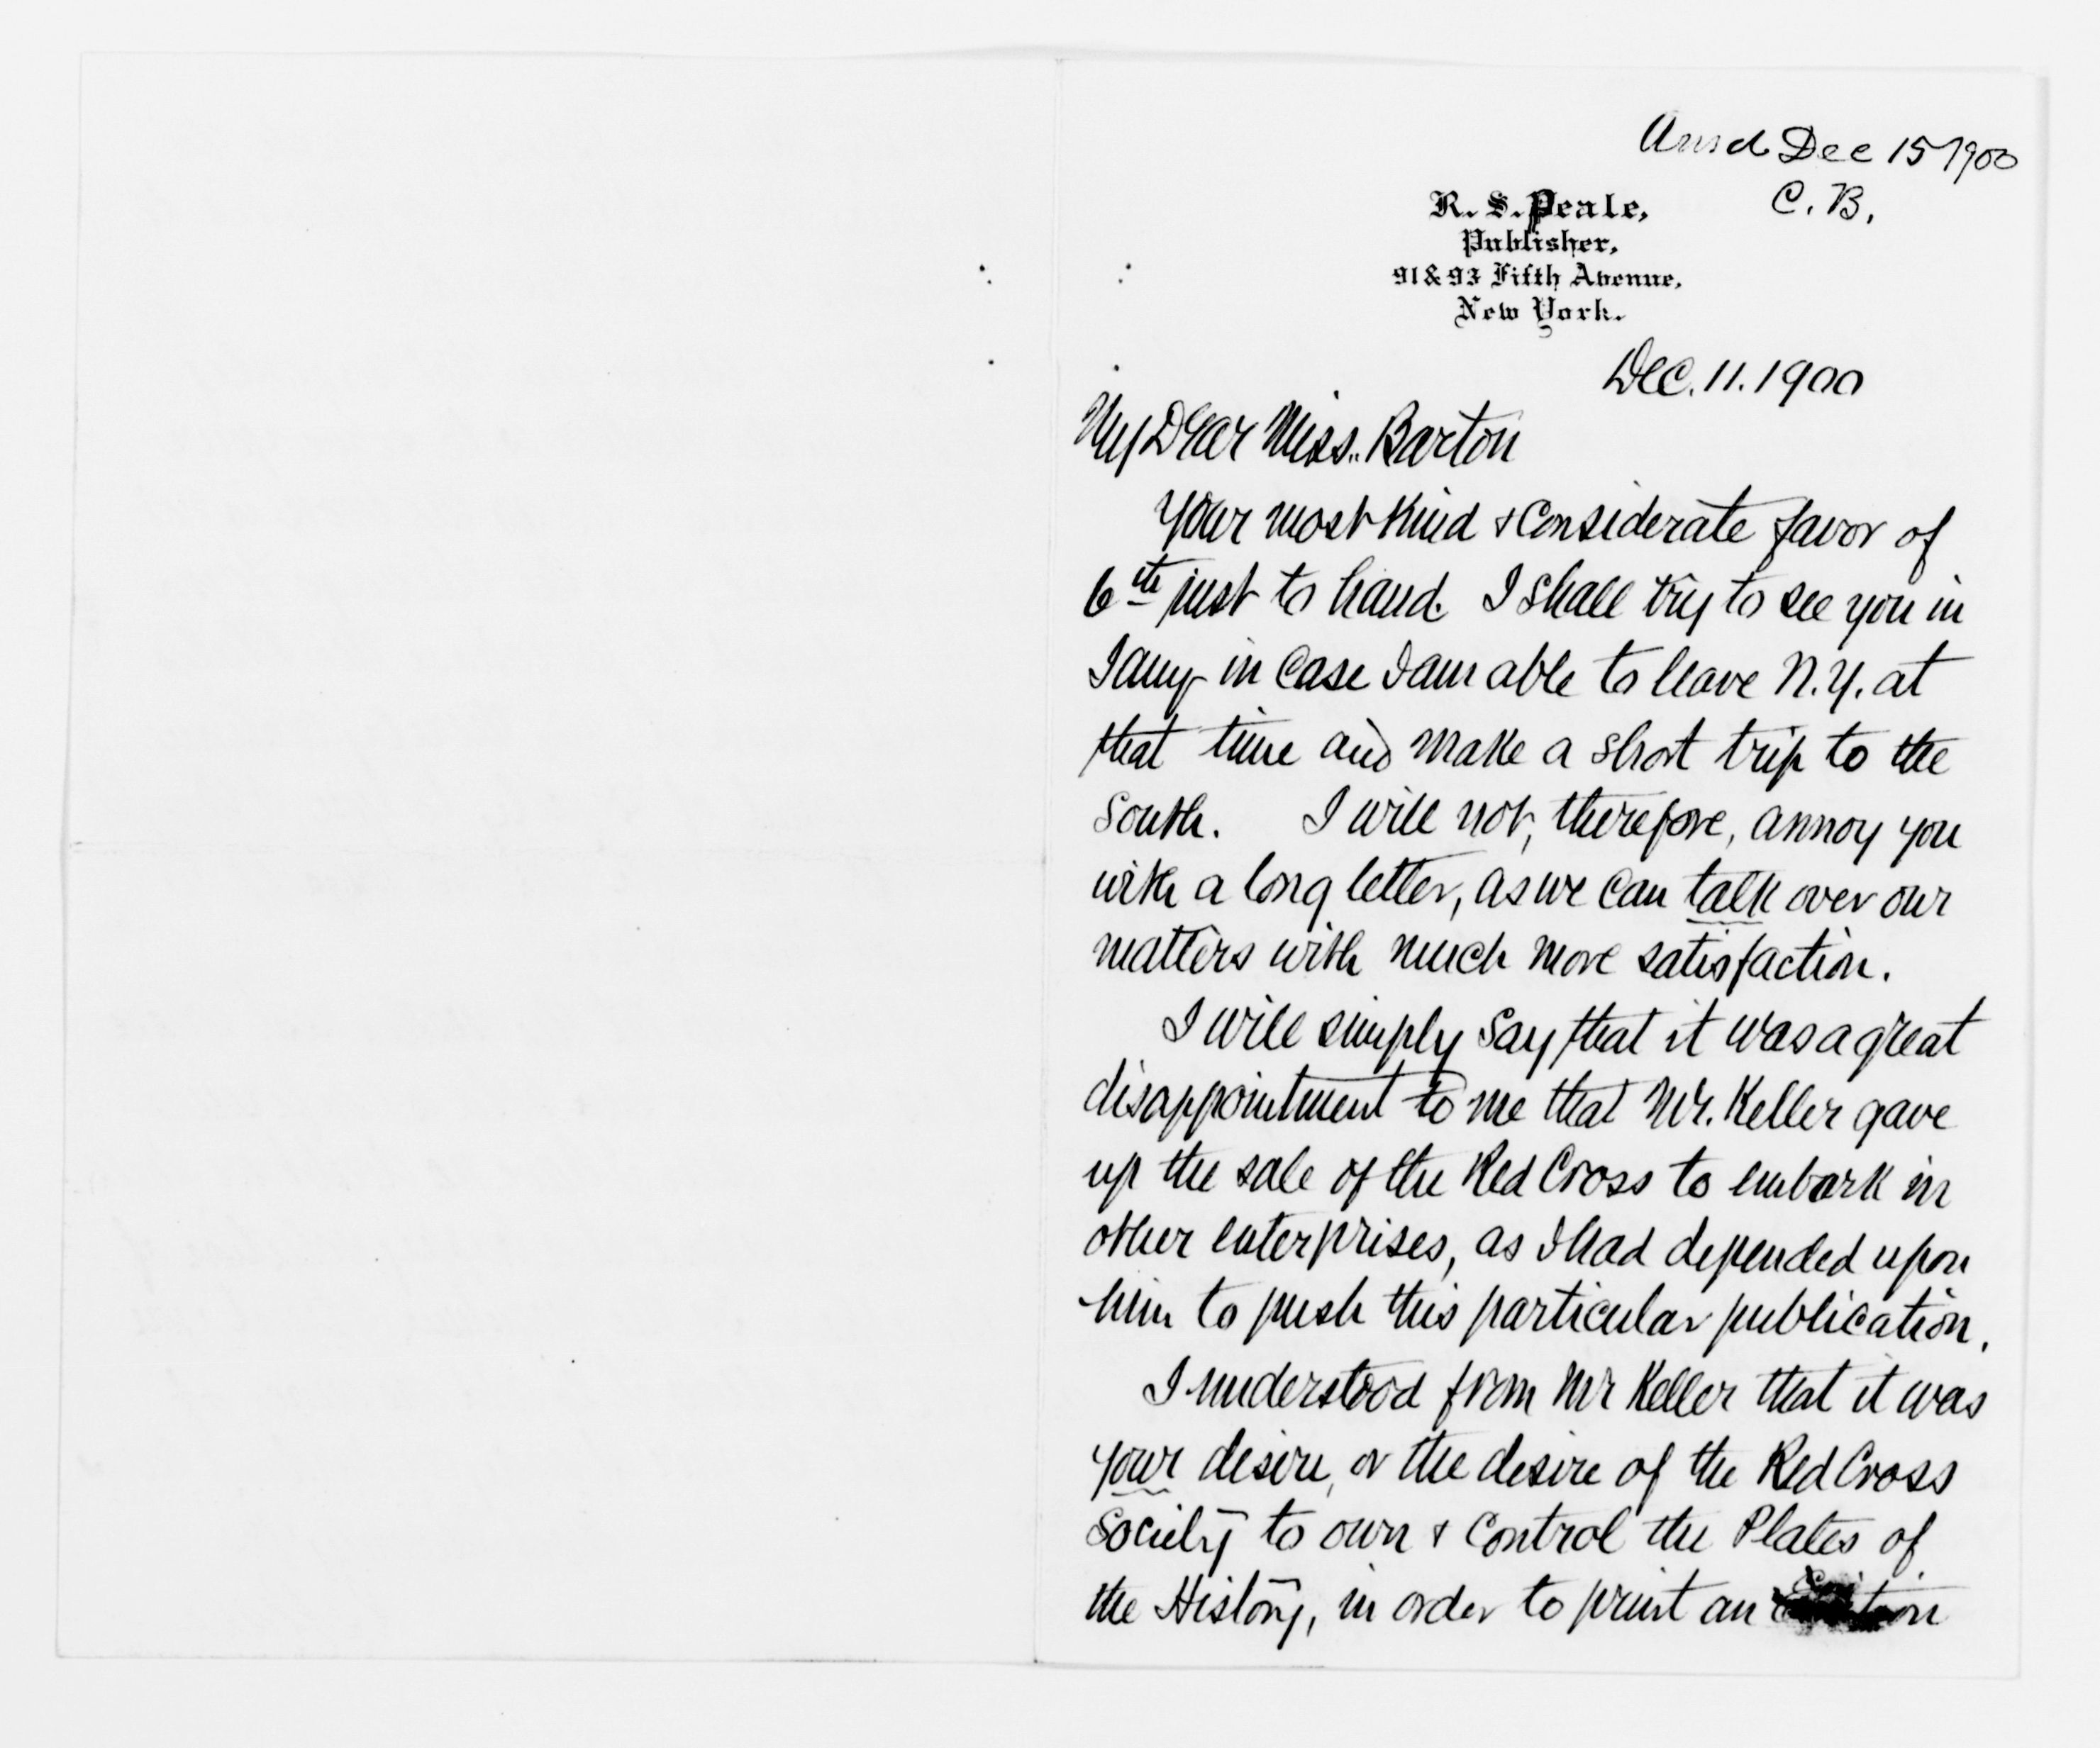 Ansd Dec 15 1900
C. B.
R. S. Peale,
Publisher,
91 & 93 Fifth Avenue,
New York.
Dec. 11. 1900
My Dear Miss. Barton
Your most kind & considerate favor of
6th just to hand. I shall try to see you in
Jany in case I am able to leave N.Y. at
that time and make a short trip to the
South. I will not, therefore, annoy you
with a long letter, as we can talk over our
matters with much more satisfaction.
I will simply say that it was a great
disappointment to me that Mr. Keller gave
up the sale of the Red Cross to embark in
other enterprises, as I had depended upon
him to push this particular publication.
I understood from Mr Keller that it was
your desire, or the desire of the Red Cross
Society to own & control the Plates of
the History, in order to print an Edition